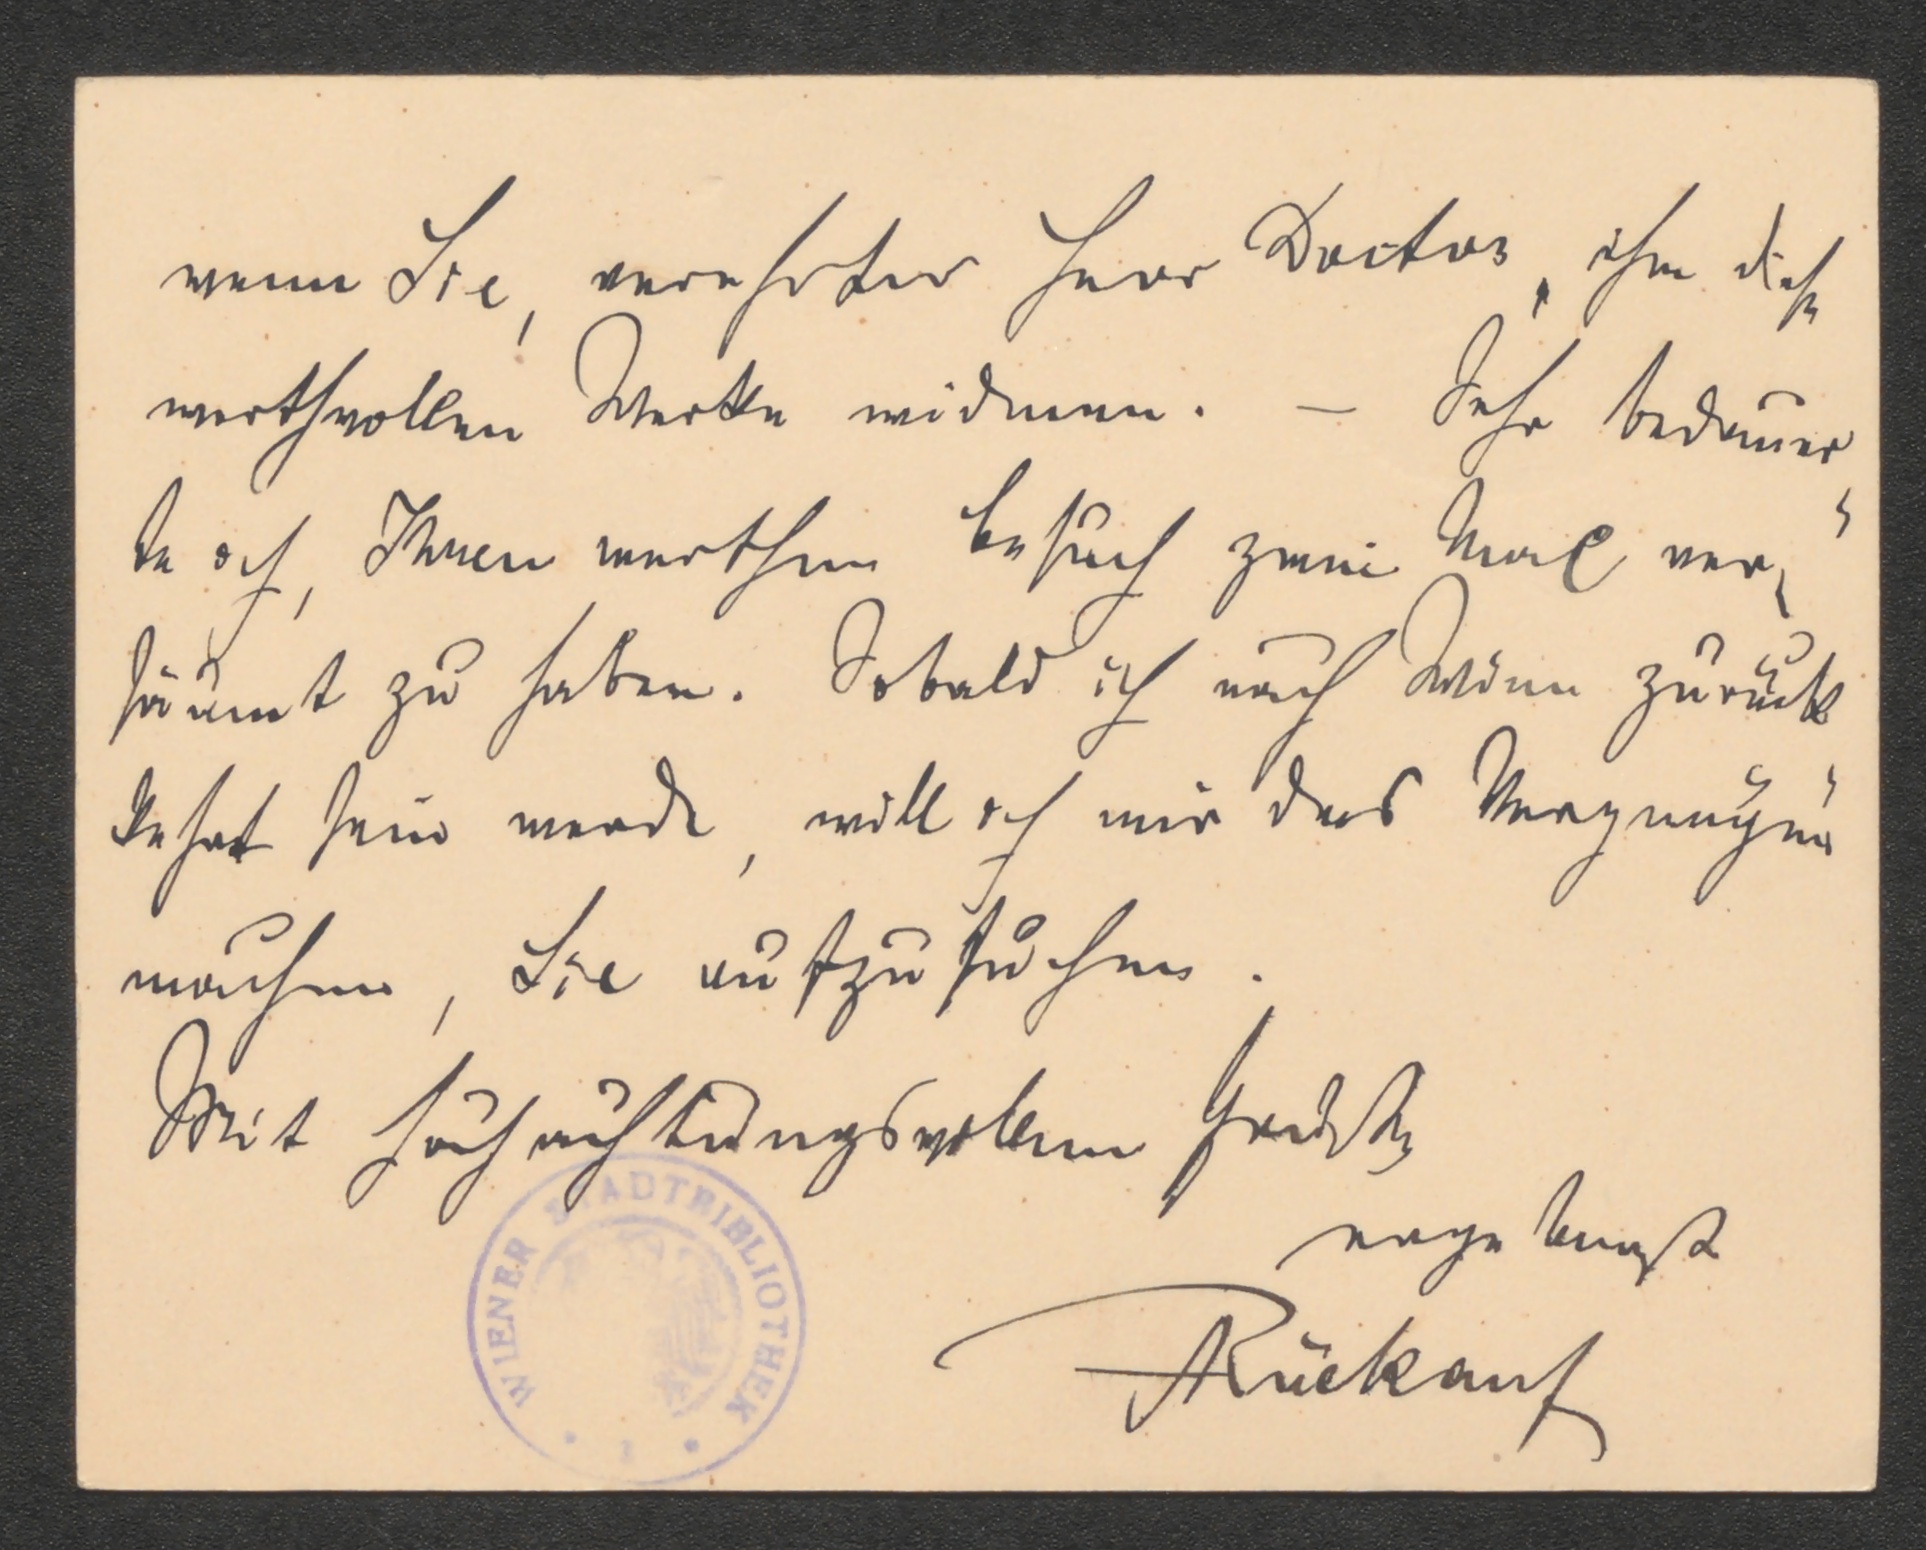 wenn Sie, verehrter Herr Doctor, ihm diese
werthvollen Werke widmen. — Sehr bedauer
te ich, Ihren werthen Besuch zwei Mal ver-
säumt zu haben. Sobald ich nach Wien zurück
kehrt sein werde, will ich mir das Vergnügen
machen, Sie aufzusuchen.
Mit hochachtungsvollem Gruße
ergebenst
Rückauf
WIENER STADTBIBLIOTHEK